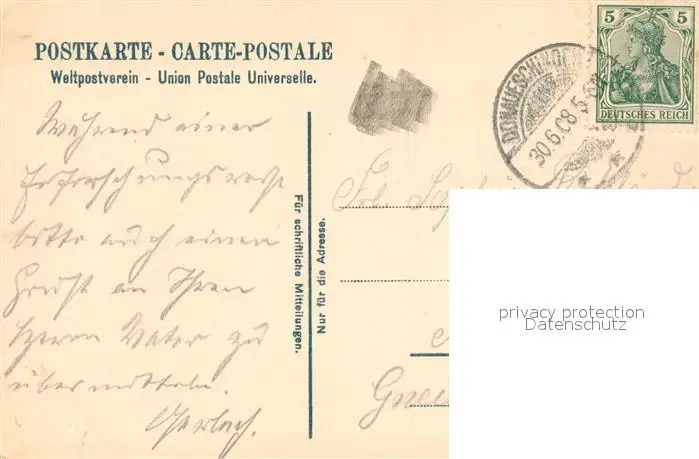 POSTKARTE - CARTE-POSTALE
Weltpostverein - Union Postale Universelle.
Während einer
Erforschungsreise
bitte auch einen
Gruß an Ihren
Herrn Vater zu
übermitteln.
Gerlach.
Für schriftliche Mitteilungen.
Nur für die Adresse.
5 5
DEUTSCHES REICH
DONAUESCHINGEN
30.6.08.5-6
Frl.
privacy protection
Datenschutz